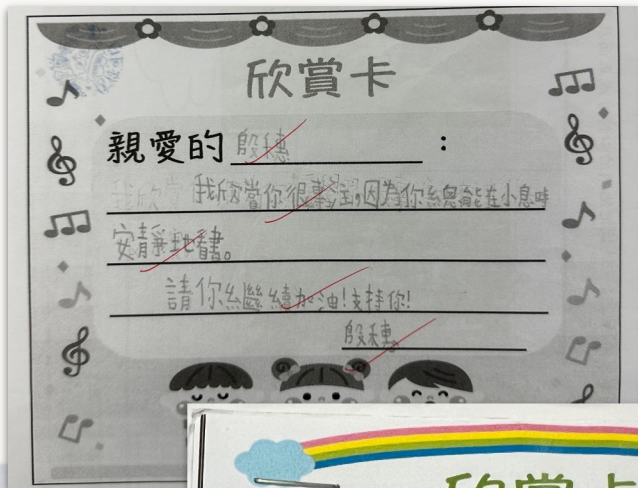 欣賞卡
親愛的殷穗：
我欣賞你很專注,因為你總能在小息時
安靜地看書。
請你繼續加油!支持你!
殷穗
欣賞卡